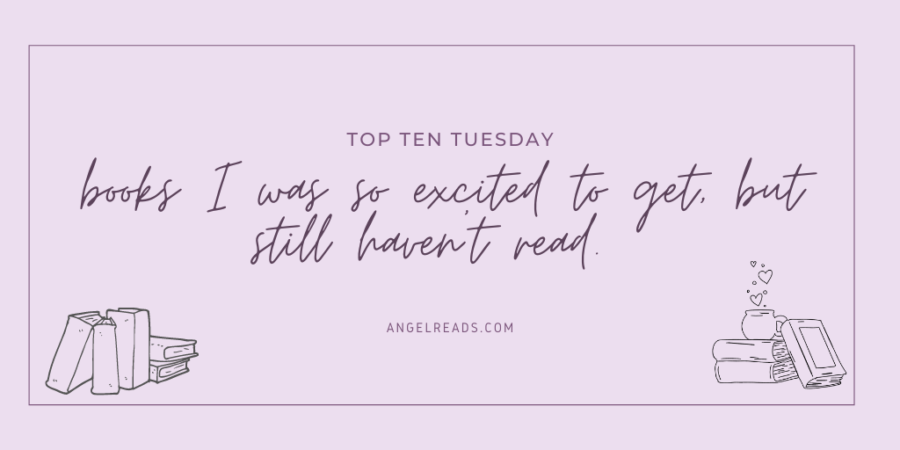 TOP TEN TUESDAY
books I was so excited to get, but
still haven't read.
ANGELREADS.COM